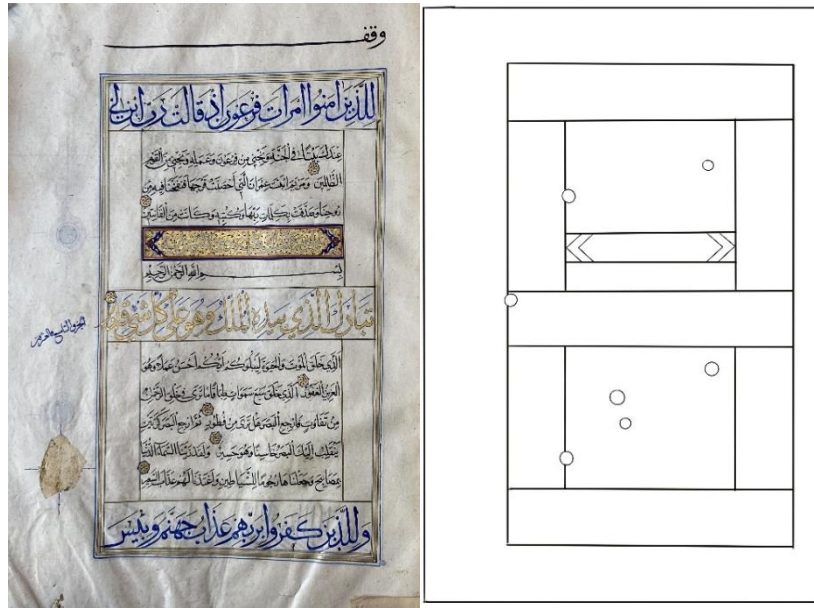 وقف
للذين امنوا امرات فرعون اذ قالت رب ابن لي
عندك بيتا في الجنة ونجني من فرعون وعمله ونجني من القوم
الظالمين ومريم ابنت عمران التي احصنت فرجها فنفخنا فيه من
روحنا وصدقت بكلمات ربها وكتبه وكانت من القانتين
بسم الله الرحمن الرحيم
تبارك الذي بيده الملك وهو على كل شيء قدير
الجزو التاسع والعشرون
الذي خلق الموت والحيوة ليبلوكم ايكم احسن عملا وهو
العزيز الغفور الذي خلق سبع سموات طباقا ما ترى في خلق الرحمن
من تفاوت فارجع البصر هل ترى من فطور ثم ارجع البصر كرتين
ينقلب اليك البصر خاسئا وهو حسير ولقد زينا السماء الدنيا
بمصابيح وجعلناها رجوما للشياطين واعتدنا لهم عذاب السعير
وللذين كفروا بربهم عذاب جهنم وبئس